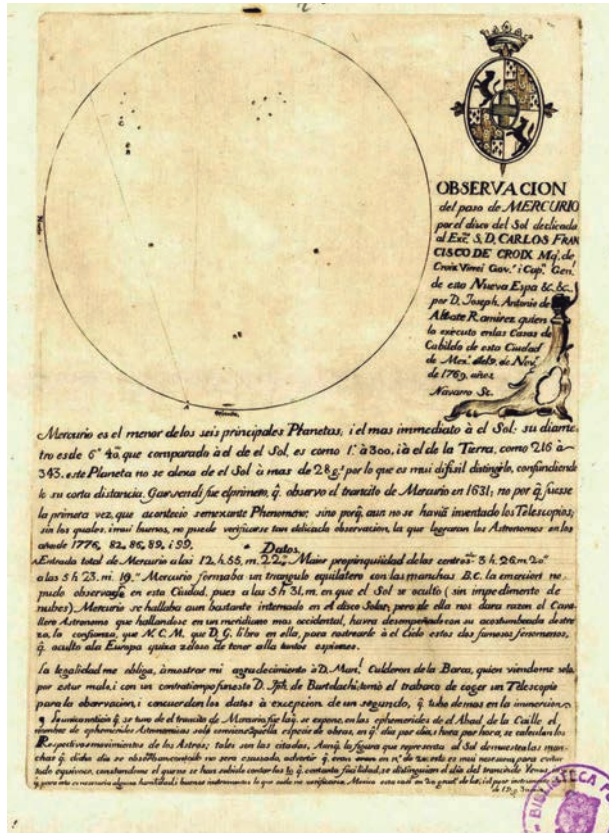 OBSERVACION
del paso de MERCURIO
por el disco del Sol dedicada
al Exc. S. D. CARLOS FRAN
CISCO DE CROIX Mq. de
Croix Virrei Gov. i Cap. Gen.
de esta Nueva Espa &c. &c.
por D. Joseph. Antonio de
Alzate Ramirez quien
la executo en las Casas de
Cabildo de esta Ciudad
de Mex. de Nov.
de 1769. años
Navarro Sc.
Mercurio es el menor de los seis principales Planetas, i el mas immediato à el Sol: su diame
tro es de 6" que comparado à el de el Sol, es como 1. à 300, i à el de la Tierra, como 216 à
343. este Planeta no se alexa de el Sol à mas de 28 g. por lo que es mui difisil distinguirlo, confundiendo
lo su corta distancia. Gassendi fue el primero, q. observo el trancito de Mercurio en 1631; no por q. fuesse
la primera vez, que acontecio semexante Phenomeno; sino porq. aun no se havia inventado los Telescopios;
sin los quales, i mui buenos, no puede verificarse tan delicada observacion, la que lograran los Astronomos en los
años de 1776, 82, 86, 89, i 99.
Datos
Entrada total de Mercurio a las 12. h. 55. m. 22. Maior propinquidad de los centros 3 h. 26. m. 20
a las 5 h 23. m. 19." Mercurio formaba un triangulo equilatero con las manchas B. C. la emercion no
pudo observarse en esta Ciudad, pues a las 5 h 31. m. en que el Sol se oculto (sin impedimento de
nubes) Mercurio se hallaba aun bastante internado en el disco Solar; pero de ella nos dara razon el Cava
llero Astronomo que hallandose en un meridiano mas occidental, havra desempeñado con su acostumbrada destre
za, la confianza, que N. C. M. que D. G. libro en ella, para rastrearle à el Cielo estos dos famosos fenomenos,
q. oculto ala Europa quiza zeloso de tener alla tantos espiones.
La legalidad me obliga, à mostrar mi agradecimiento à D. Man. Calderon de la Barca, quien viendome solo
por estar malo, i con un contratiempo funesto D. Jph. de Burtelachi, tomò el trabaxo de coger un Telescopio
para la observacion, i concuerdan los datos à excepcion de un segundo, q. tubo de mas en la immercion
q. se tuvo de el trancito de Mercurio, fue la q. se expone, en las ephemerides de el Abad, de la Caille, el
nombre de ephemerides Astronomicas solo conviene à aquella especie de obras, en q. dia por dia, i hora por hora, se calculan los
Respectivos movimientos de los Astros; tales son las citadas. la figura que representa al Sol demuestra las man
chas q. dicho dia se no sera escusado, advertir q. eran en n. de 20